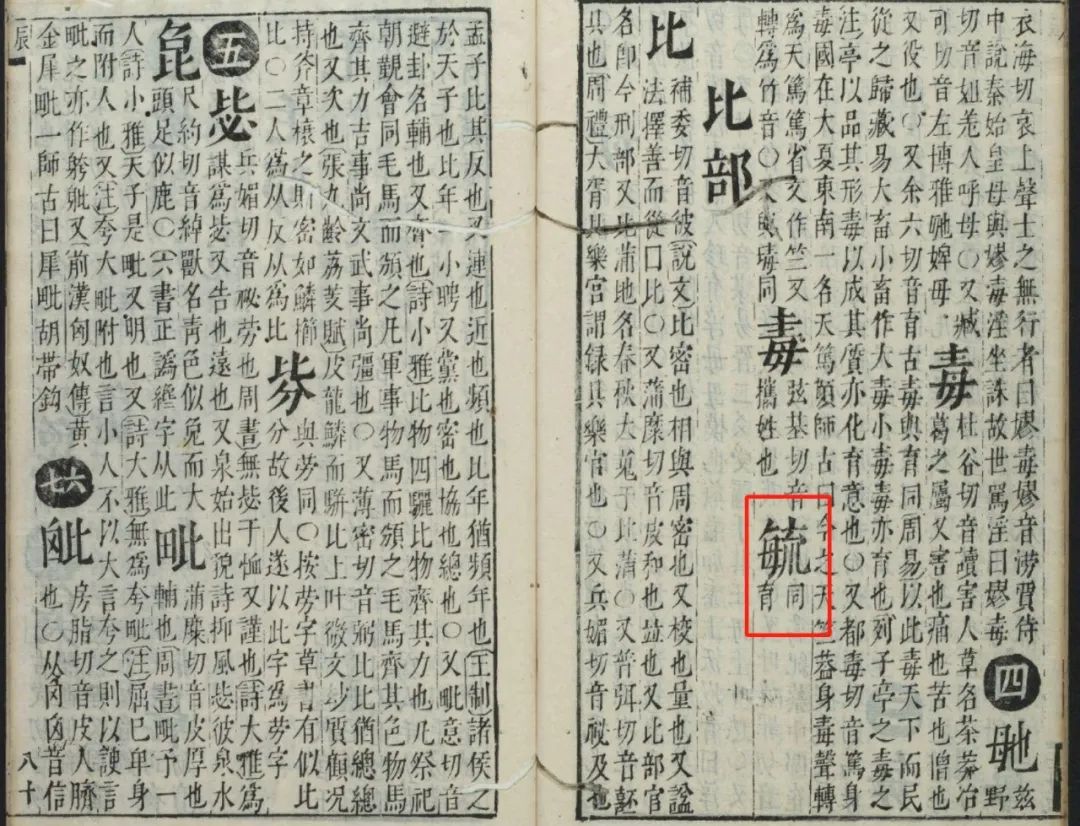 衣海切哀上聲士之無行者曰嫪毐嫪音澇賈侍
中說秦始皇母與嫪毐淫坐誅故世罵淫曰嫪毐
四 毑 茲野
切音姐羌人呼母○又臧
可切音左博雅毑婢毋
毒 杜谷切音讀害人草名茶莽冶
葛之屬又害也痛也苦也憎也
又役也○又余六切音育古毒與育同周易以此毒天下而民
從之歸藏易大畜小畜作大毒小毒毒亦育也列子亭之毒之
注亭以品其形毒以成其質亦化育意也○又都毒切音篤身
毒國在大夏東南一名天篤顏師古曰今之天竺葢身毒聲轉
爲天篤篤省文作竺又
轉爲竹音○又與 同
弦基切音
攜姓也
毓 同
育
比部
比 補委切音彼說文比密也相與周密也又校也量也又諡
法擇善而從曰比○又蒲糜切音皮和也竝也又比部官
名卽今刑部又比蒲地名春秋大蒐于比蒲○又普弭切音諀
具也周禮大胥比樂官謂録具樂官也○又兵媚切音祕及也
孟子比其反也又連也近也頻也比年猶頻年也王制諸侯之
於天子也比年一小聘又黨也密也協也總也○又毗意切音
避卦名輔也又齊也詩小雅比物四驪比物齊其力也凡祭祀
朝覲會同毛馬而頒之凡軍事物馬而頒之毛馬齊其色物馬
齊其力吉事尚文武事尚彊也○又薄密切音弼比比猶總總
也又次也張九齡荔芰賦皮龍鱗而駢比上叶微文妙質顧况
持斧章榱之則密如鱗櫛
比○二人爲从反从爲比
與勞同○按勞字草書有似比
分故後人遂以此字爲勞字
五 毖 兵媚切音祕勞也周書無毖于恤又謹也詩大雅爲
謀爲毖又告也遠也又泉始出貌詩抑風毖彼泉水
㲋 尺約切音綽獸名青色似兔而大
頭足似鹿○六書正譌纔字从此
毗 蒲糜切音皮厚也
輔也周書毗予一
人詩小雅天子是毗又明也又詩大雅無爲夸毗注屈巳卑身
而附人也又注夸大毗附也言小人不以大言夸之則以諛言
毗之亦作 又前漢匈奴傳黃
金犀毗一師古曰犀毗胡帶鈎
六 房脂切音皮人臍
也○从囟囟音信
辰一
八十